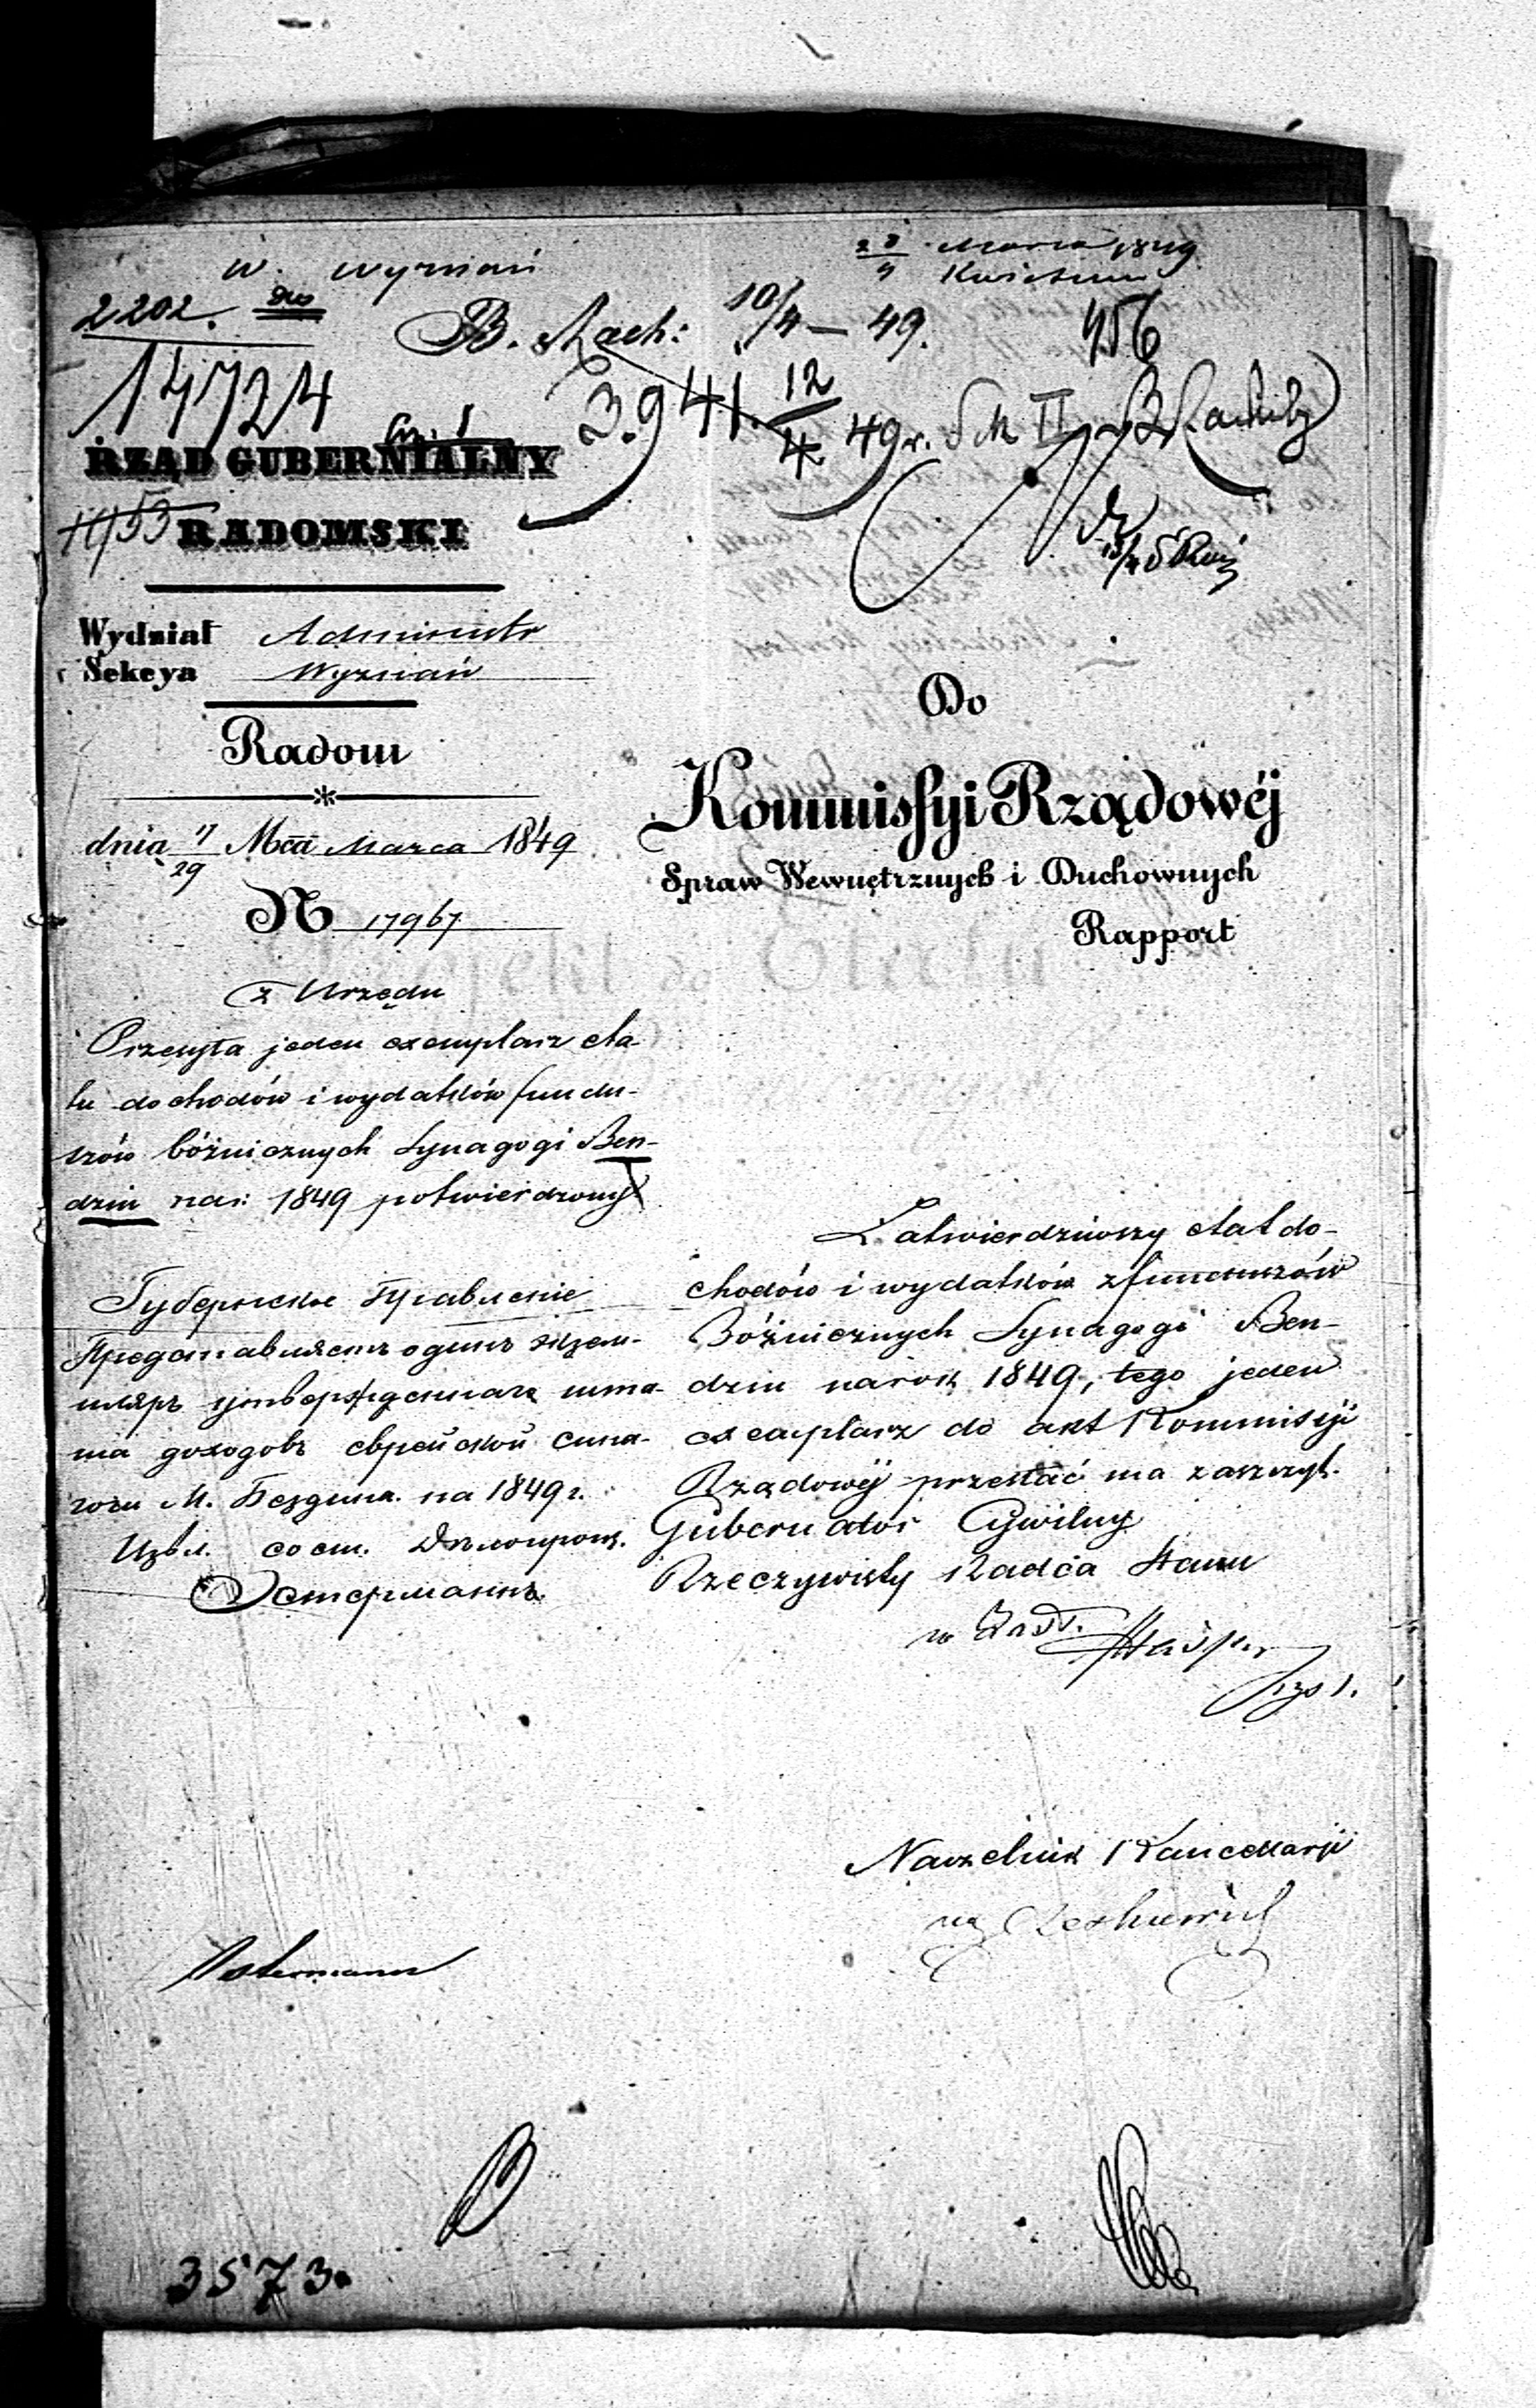 W. Wyznań
2202.
14724
B. Rach: 10/4 — 49.
Marca 1849
Kwietnia
456
3.941. 12/4 49 r.
RZĄD GUBERNIALNY
RADOMSKI
Wydział Administr
Sekcya Wyznań
Radom
dnia 17/29 Mca Marca 1849
N 17967
Do
Kommissyi Rządowéj
Spraw Wewnętrznych i Duchownych
Rapport
z Urzędu
Przesyła jeden exemplarz eta-
tu dochodów i wydatków fundu-
szów bóżnicznych Synagogi Ben-
dzin na r: 1849 potwierdzony
Губернское Правленіе
Представляетъ одинъ экзем-
пляръ утвержденнаго шта-
та доходовъ еврейской сина-
гоги М. Бендина на 1849 г.
Остерманнъ
Zatwierdziwszy etat do-
chodów i wydatków z funduszów
Bóżnicznych Synagogi Ben-
dzin na rok 1849, tego jeden
exemplarz do akt Kommisyi
Rządowéj przesłać ma zaszczyt.
Gubernator Cywilny
Rzeczywisty Radca Stanu
w Zast.
Naczelnik Kancellaryi
Ostermann
3573.